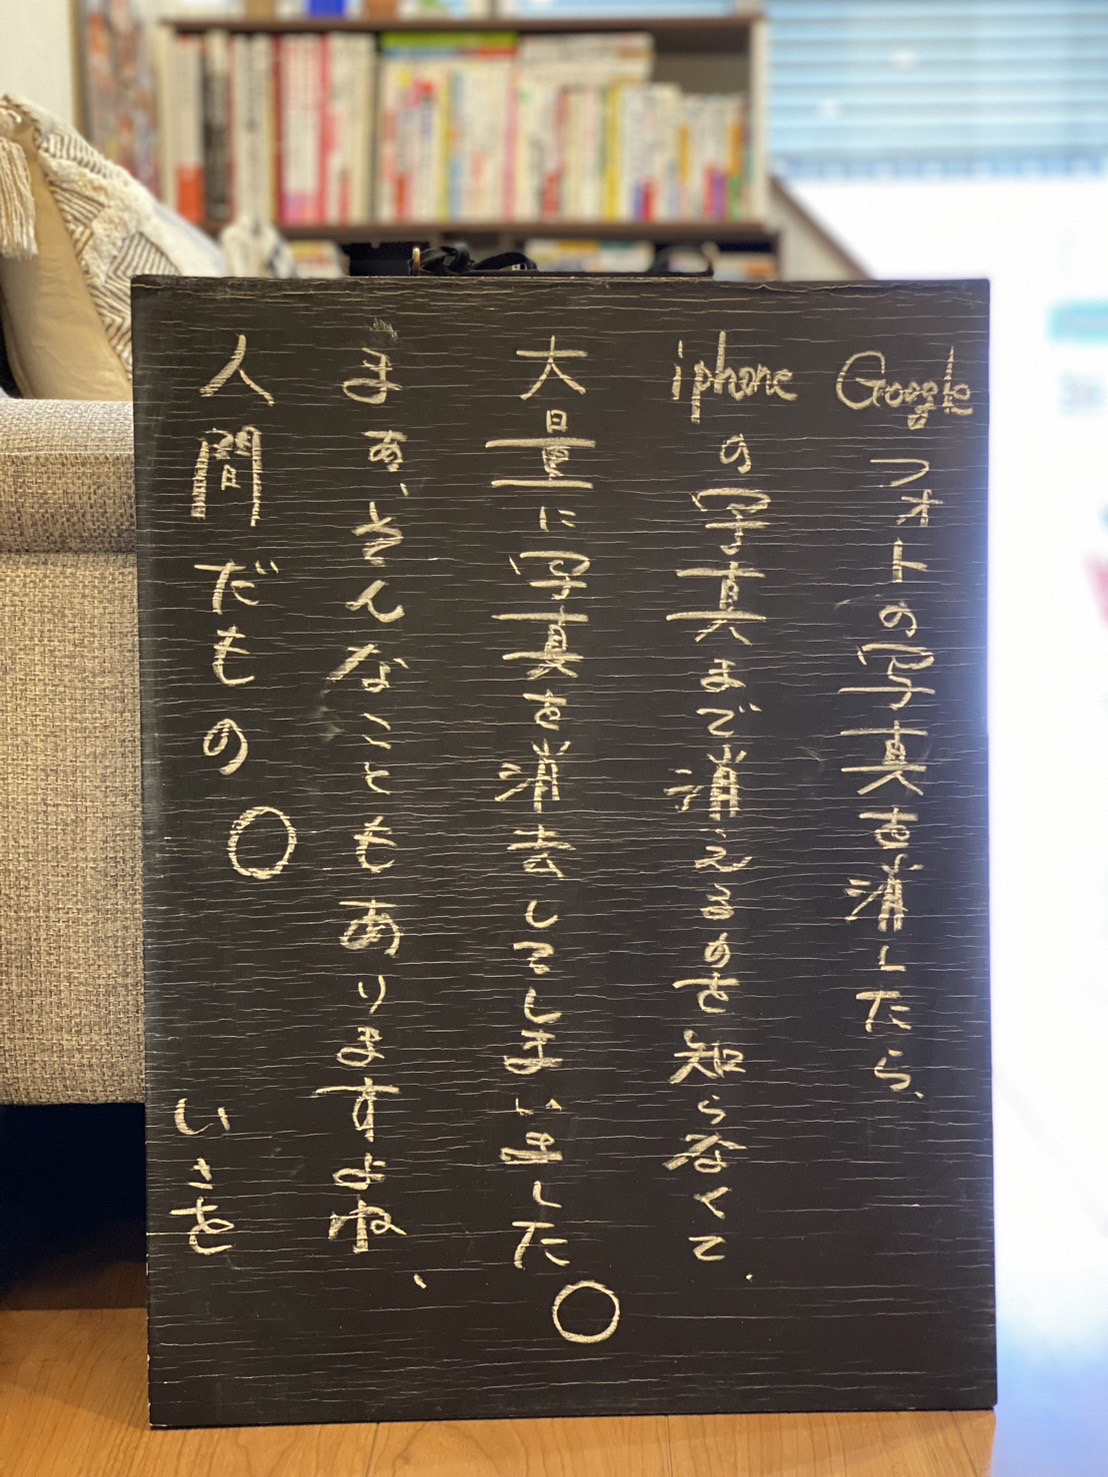 Googleフォトの写真を消したら、
iphoneの写真まで消えるのを知らなくて、
大量に写真を消去してしまいました。
まぁ、そんなこともありますよね、
人間だもの。
いさを